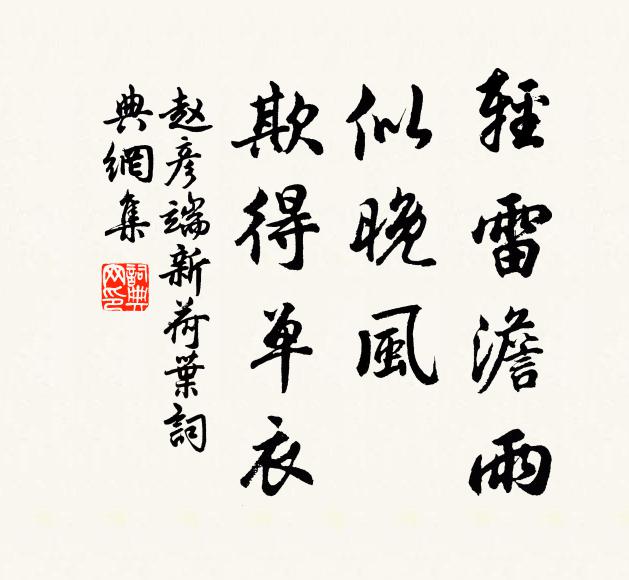 輕雷澹雨
似晚風
欺得單衣
赵彥端新荷葉詞
典網集
詞典网印